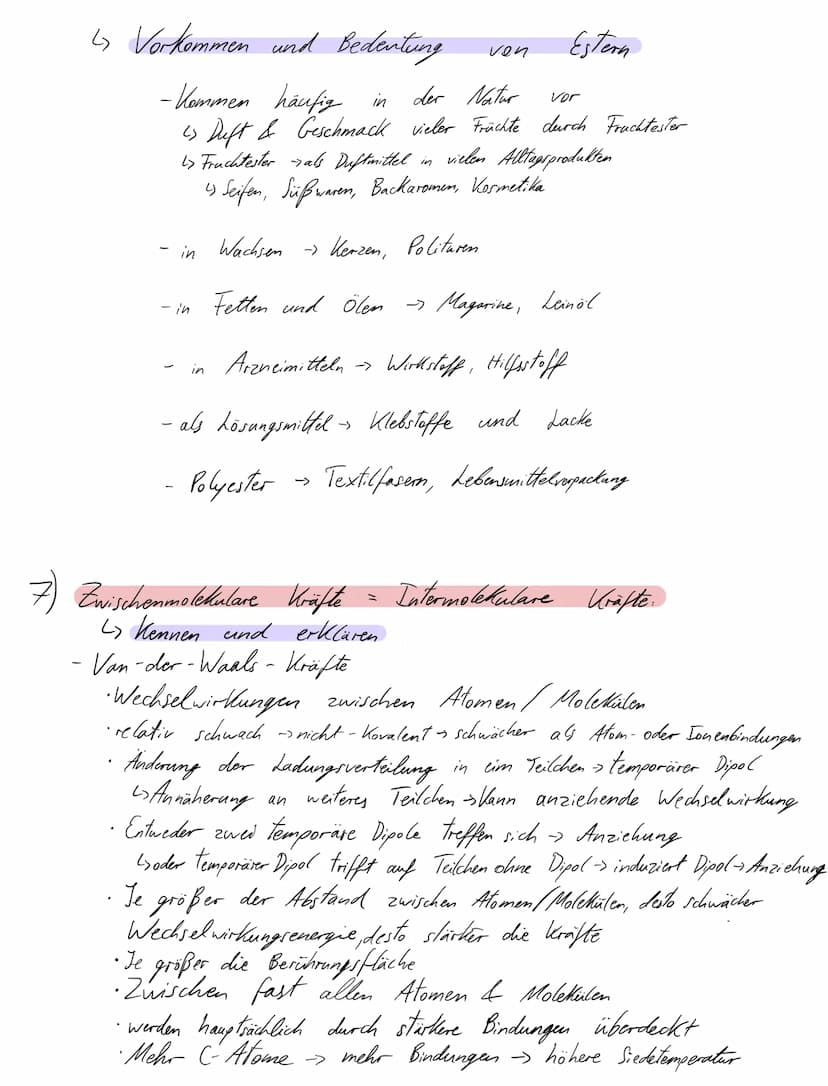 ↳ Vorkommen und Bedeutung von Estern
- Kommen häufig in der Natur vor
↳ Duft & Geschmack vieler Früchte durch Fruchtester
↳ Fruchtester → als Duftmittel in vielen Alltagsprodukten
↳ Seifen, Süßwaren, Backaromen, Kosmetika
- in Wachsen → Kerzen, Polituren
- in Fetten und Ölen → Magarine, Leinöl
- in Arzneimitteln → Wirkstoff, Hilfsstoff
- als Lösungsmittel → Klebstoffe und Lacke
- Polyester → Textilfasern, Lebensmittelverpackung
7) Zwischenmolekulare Kräfte = Intermolekulare Kräfte:
↳ Kennen und erklären
- Van-der-Waals-Kräfte
· Wechselwirkungen zwischen Atomen/Molekülen
· relativ schwach → nicht-kovalent → schwächer als Atom- oder Ionenbindungen
· Änderung der Ladungsverteilung in eim Teilchen → temporärer Dipol
↳ Annäherung an weiteres Teilchen → kann anziehende Wechselwirkung
· Entweder zwei temporäre Dipole treffen sich → Anziehung
↳ oder temporärer Dipol trifft auf Teilchen ohne Dipol → induziert Dipol → Anziehung
· Je größer der Abstand zwischen Atomen/Molekülen, desto schwächer
Wechselwirkungsenergie, desto stärker die Kräfte
· Je größer die Berührungsfläche
· Zwischen fast allen Atomen & Molekülen
· werden hauptsächlich durch stärkere Bindungen überdeckt
· Mehr C-Atome → mehr Bindungen → höhere Siedetemperatur